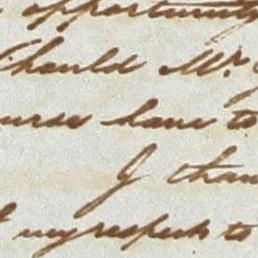 opportunity
should Mr.
have to
I than
my respects to